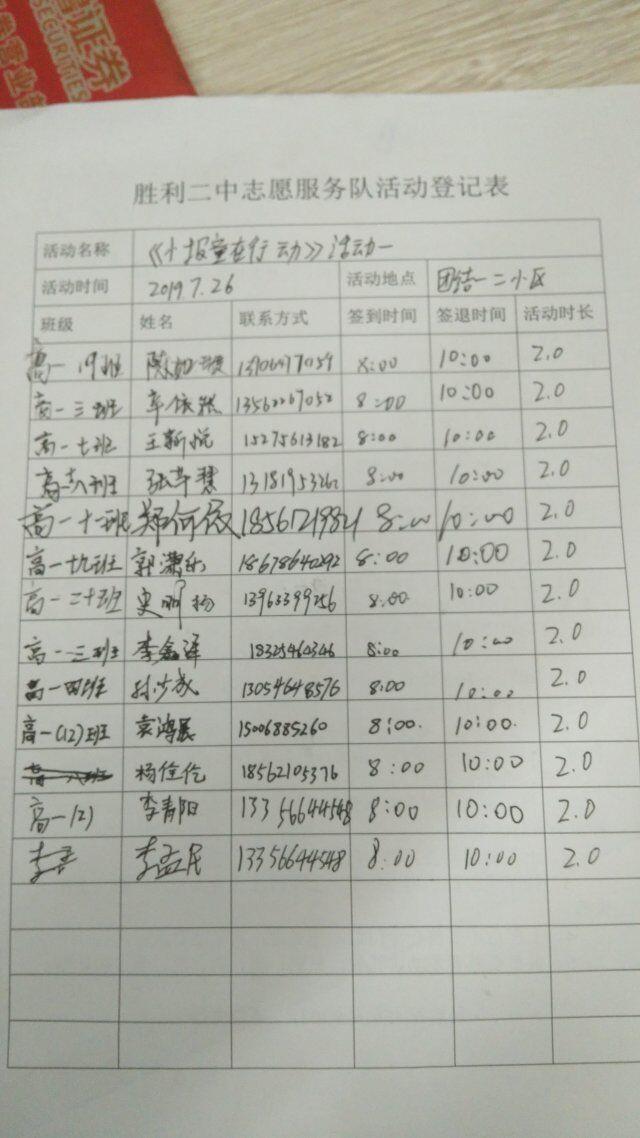 证券
SECURITIES
营业部
胜利二中志愿服务队活动登记表
活动名称 《小报童在行动》活动一
活动时间 2019 7.26 活动地点 团结一二小区
班级 姓名 联系方式 签到时间 签退时间 活动时长
高一 19班 8:00 10:00 2.0
高一三班 辛依然 13562267052 8:00 10:00 2.0
高一七班 王新悦 15275613182 8:00 10:00 2.0
8:00 10:00 2.0
高一十一班 郑何薇 18561219821 8:00 10:00 2.0
高一十九班 郭潇乐 18678640292 8:00 10:00 2.0
高一二十班 史明杨 13963399256 8:00 10:00 2.0
高一三班 李鑫泽 18325460346 8:00 10:00 2.0
高一四班 13054648576 8:00 10:00 2.0
高一(12)班 袁鸿展 15006885260 8:00 10:00 2.0
杨佳伦 18562105376 8:00 10:00 2.0
高一12) 李青阳 13356644548 8:00 10:00 2.0
李孟民 13356644548 8:00 10:00 2.0